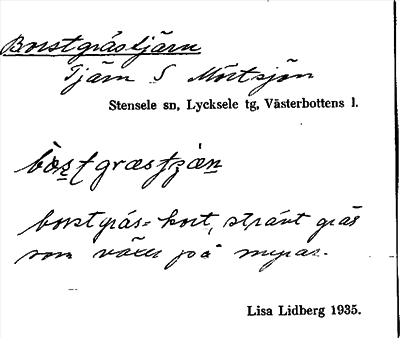 Borstgrästjärn
Tjärn S Mörtsjön
Stensele sn, Lycksele tg, Västerbottens l.
borstgräs= kort, strävt gräs
som växer på myrar.
Lisa Lidberg 1935.